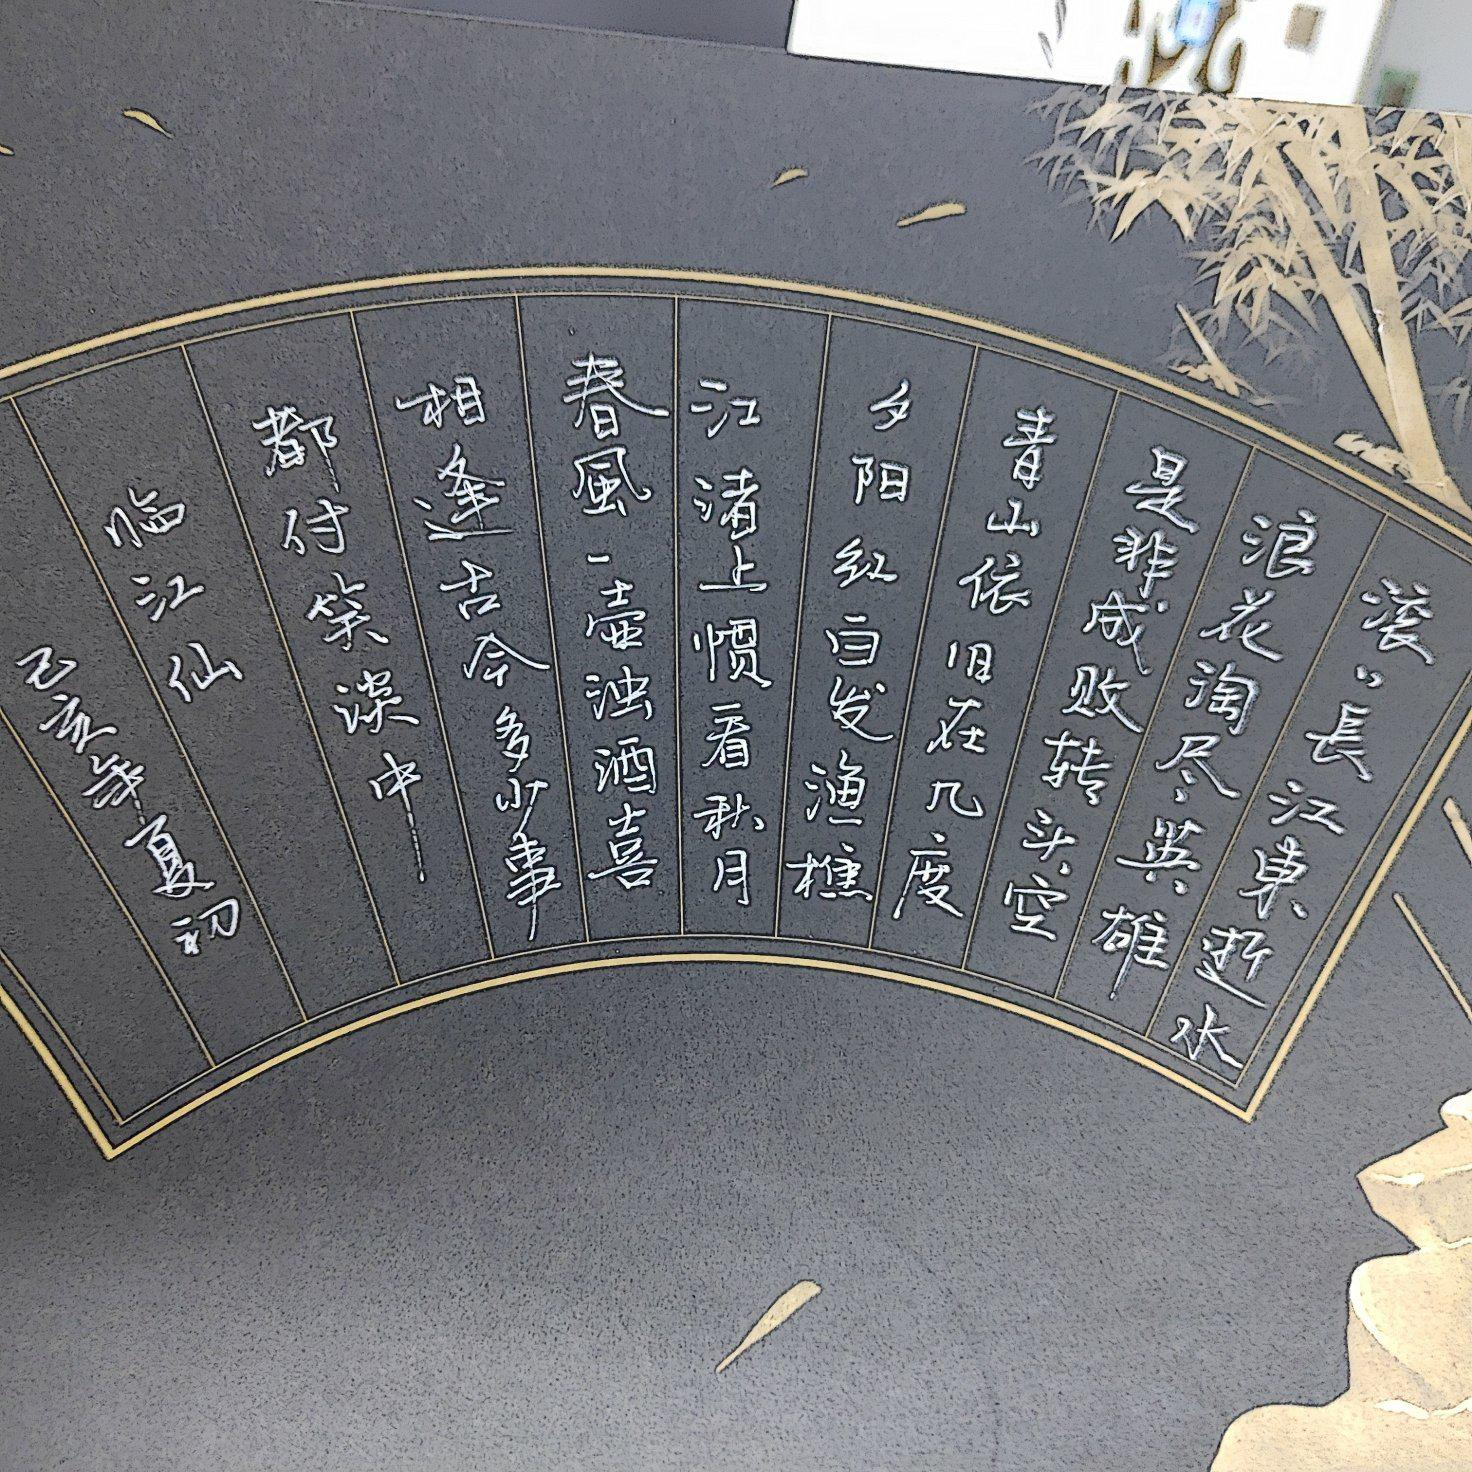 滚〻長江東逝水
浪花淘尽英雄
是非成败转头空
青山依旧在几度
夕阳红白发渔樵
江渚上惯看秋月
春風一壶浊酒喜
相逢古今多少事
都付笑淡中
临江仙
己亥年夏初